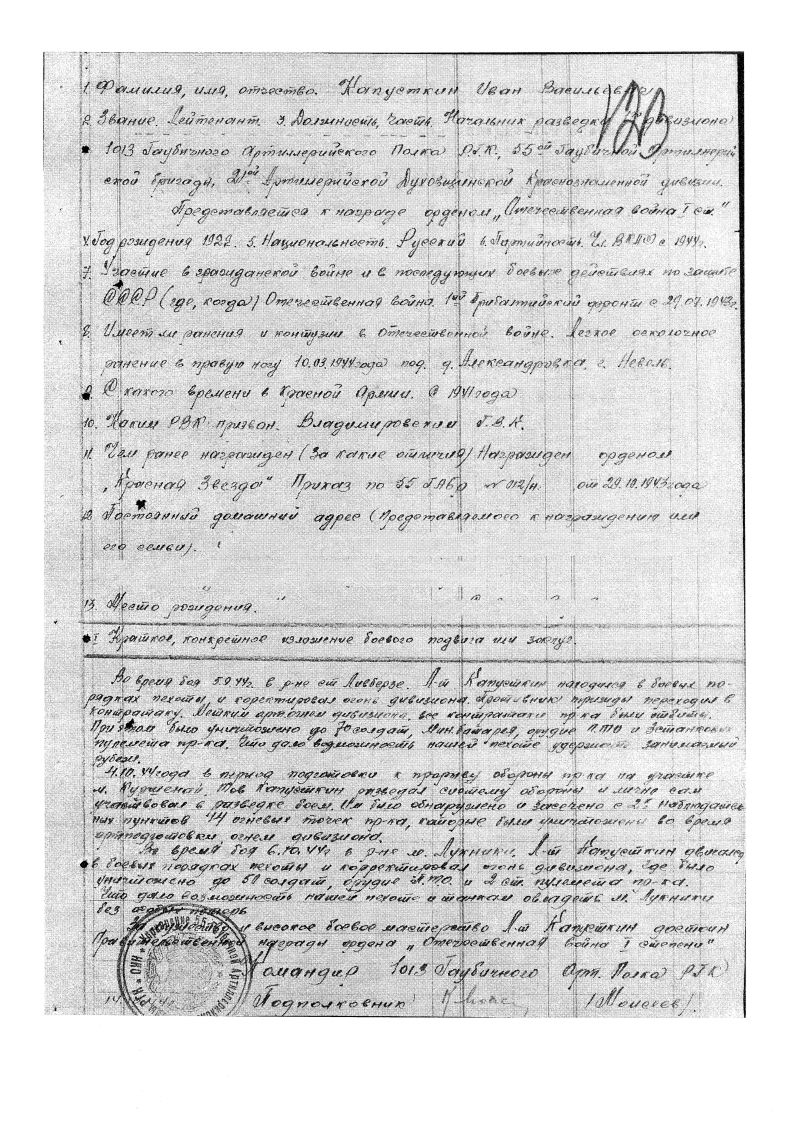 1. Фамилия, имя, отчество. Капусткин Иван Васильевич
123
2. Звание. Лейтенант. 3. Должность, часть. Начальник разведки дивизиона
1013 Гаубичного Артиллерийского Полка РГК, 55ой Гаубичной Артиллерий
ской бригады, 21ой Артиллерийской Духовщинской Краснознаменной дивизии.
Представляется к награде орденом „Отечественная война I ст."
4. Год рождения 1922. 5. Национальность. Русский 6. Партийность. Чл. ВКПб с 1944г.
7. Участие в гражданской войне и в последующих боевых действиях по защите
СССР (где, когда) Отечественная война. 1ый Прибалтийский фронт с 29.07.1943г.
8. Имеет ли ранения и контузии в Отечественной войне. Легкое осколочное
ранение в правую ногу 10.03.1944 года под. д. Александровка. г. Невель.
9. С какого времени в Красной Армии. С 1941 года
10. Каким РВК призван. Владимировским Г.В.К.
11. Чем ранее награжден (За какие отличия) Награжден орденом
„Красная Звезда" Приказ по 55 ГАБр № 012/н. от 29.10.1943 года
12. Постоянный домашний адрес (Представляемого к награждению или
его семьи).
13. Место рождения. "
I Краткое, конкретное изложение боевого подвига или заслуг.
Во время боя 5.9.44г. в р-не ст. Ливберзе. Л-т Капусткин находился в боевых по-
рядках пехоты и коректировал огонь дивизиона. Противник трижды переходил в
контратаку. Метким артогнем дивизиона, все контратаки пр-ка были отбиты.
При этом было уничтожено до 70 солдат, Мин. батарея, орудие П.Т.О и 3 станковых
пулемета пр-ка. Что дало возможность нашей пехоте удержать занимаемый
рубеж.
4.10.44 года в период подготовки к прорыву обороны пр-ка на участке
м. Куршенай. Тов Капусткин разведал систему обороны и лично сам
участвовал в разведке боем. Им было обнаружено и засечено с 2х наблюдатель
ных пунктов 14 огневых точек пр-ка, которые были уничтожены во время
артподготовки огнем дивизиона.
Во время боя 6.10.44г в р-не м. Лукники. Л-т Капусткин двигался
в боевых порядках пехоты и корректировал огонь дивизиона, где было
уничтожено до 50 солдат, орудие П.Т.О. и 2 ст. пулемета пр-ка.
Что дало возможность нашей пехоте и танкам овладеть м. Лукники
без особых потерь
и высокое боевое мастерство Л-т Капусткин достоин
Правительственной награды ордена „Отечественная война I степени"
Командир 1013 Гаубичного Арт. Полка РГК
Подполковник /Моисеев/.